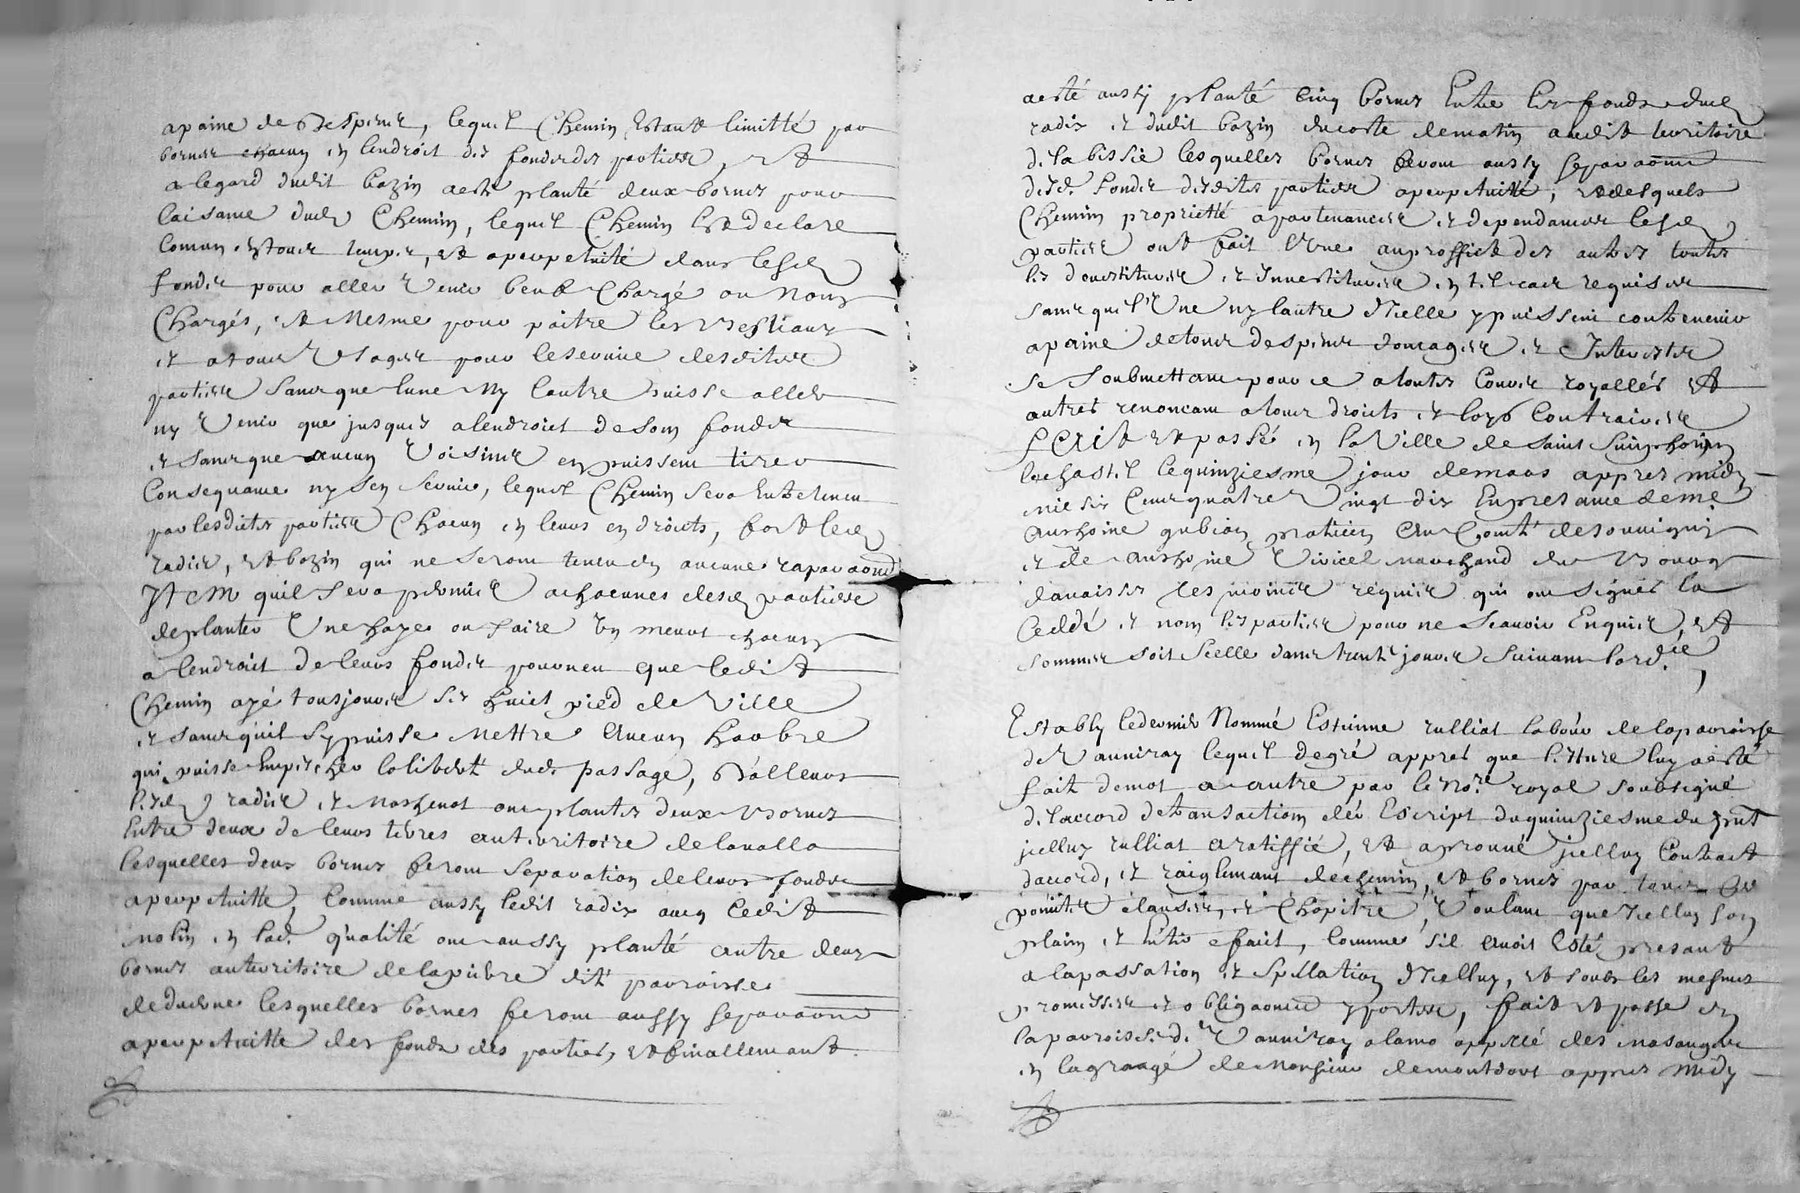 apaine de Despens, lequel Chemin Estant limitté par
bornes chacun en lendroit des fondz des parties, et
a legard dudit bozin a esté planté deux bornes pour
laisance dud Chemin, lequel Chemin est declaré
Comun en tous temps, et a perpetuité dans lesd
fondz pour aller Venir beuf Chargé ou Nons
Chargés, et Mesme pour paitre les Bestiaux
et a tous Usages pour le service desdites
parties sans que lune Ny lautre puisse aller
ny Venir que jusques a lendroit de son fondz
et sans que aucun Voisins en puissent tirer
Consequance ny sen servir, lequel Chemin sera Entretenu
par lesdites parties Chacun en leurs endroits, fort led
radix, et bozin qui ne seront tenu en aucune reparaons
Item quil sera permis a chacunes desd parties
de planter Une haye ou faire Un meurs chacun
a lendroit de leurs fondz pourveu que ledit
Chemin ayé tousjours six huict pied de Ville
et sans quil sy puisse Mettre Aucun harbre
qui puisse Empescher la liberté dud. passage, D'alleurs
lesd radix et Mosnenot ont plantés deux Bornes
Entre deux de leurs terres au territoire de lavalla
lesquelles deux bornes feront separation de leurs fondz
a perpetuitté, Comme aussy ledit radix avec ledit
molin en lad. qualité ont aussy planté autre deux
bornes au territoire de la pierre dit parroisse
de duerne lesquelles bornes feront aussy separaons
a perpetuitte des fondz des parties, et finallement
a esté aussy planté Cinq bornes Entre les fondz dud
radix et dudit bozin du costé de matin audit territoire
de la bissie lesquelles bornes feront aussy separaons
desd. fondz desdites parties a perpetuitté, et desquels
Chemin proprietté apartenances et dependances lesd
parties ont fait l'Une au proffict des autres toutes
les devestitures et Investitures en tel cas requises
sans que l'Une ny lautre d'Icelle y puissent contrevenir
a paine de tous despens domages et Interests
se soubmettant pour ce a toutes Cours royalles et
autres renonçant a tous droits et loys Contraires
fait et passé en la Ville de Saint Simphorien
le chastel le quinziesme jour de mars appres midy
mil six Cent quatre Vingt dix En presance de Me
Anthoine gubian praticien Au Comté de souvigny
et de Anthoine Viricel marchand du Bourg
davaises tesmoints requis qui ont signés la
Ceddé et nom les parties pour ne Scavoir Enquis, et
sommes soit scellé dans trente jours suivant lord.ce
Establ ledernier Nommé Estienne rulliat labour de la parroisse
de Vauniray lequel de gré appres que lecture luy a esté
fait de mot a autre par le No.re royal soubsigné
de laccord de transaction des Escript du quinziesme du pnt
jcelluy rulliat a ratiffié, et aprouvé jcelluy Contract
daccord, et raiglement de chemin, et bornes par tous
points clauses, et Chapitre, Voulant que Icelluy son
plain et entie effait, Comme sil avoit Esté presant
a la passation et Spullation d'Icelluy, et soubs les mesmes
promesses et obligaons y portees, fait et passé en
la parroisse de Vauniray a lamo appellé des
en la grange de Monsieur de montdort appres midy